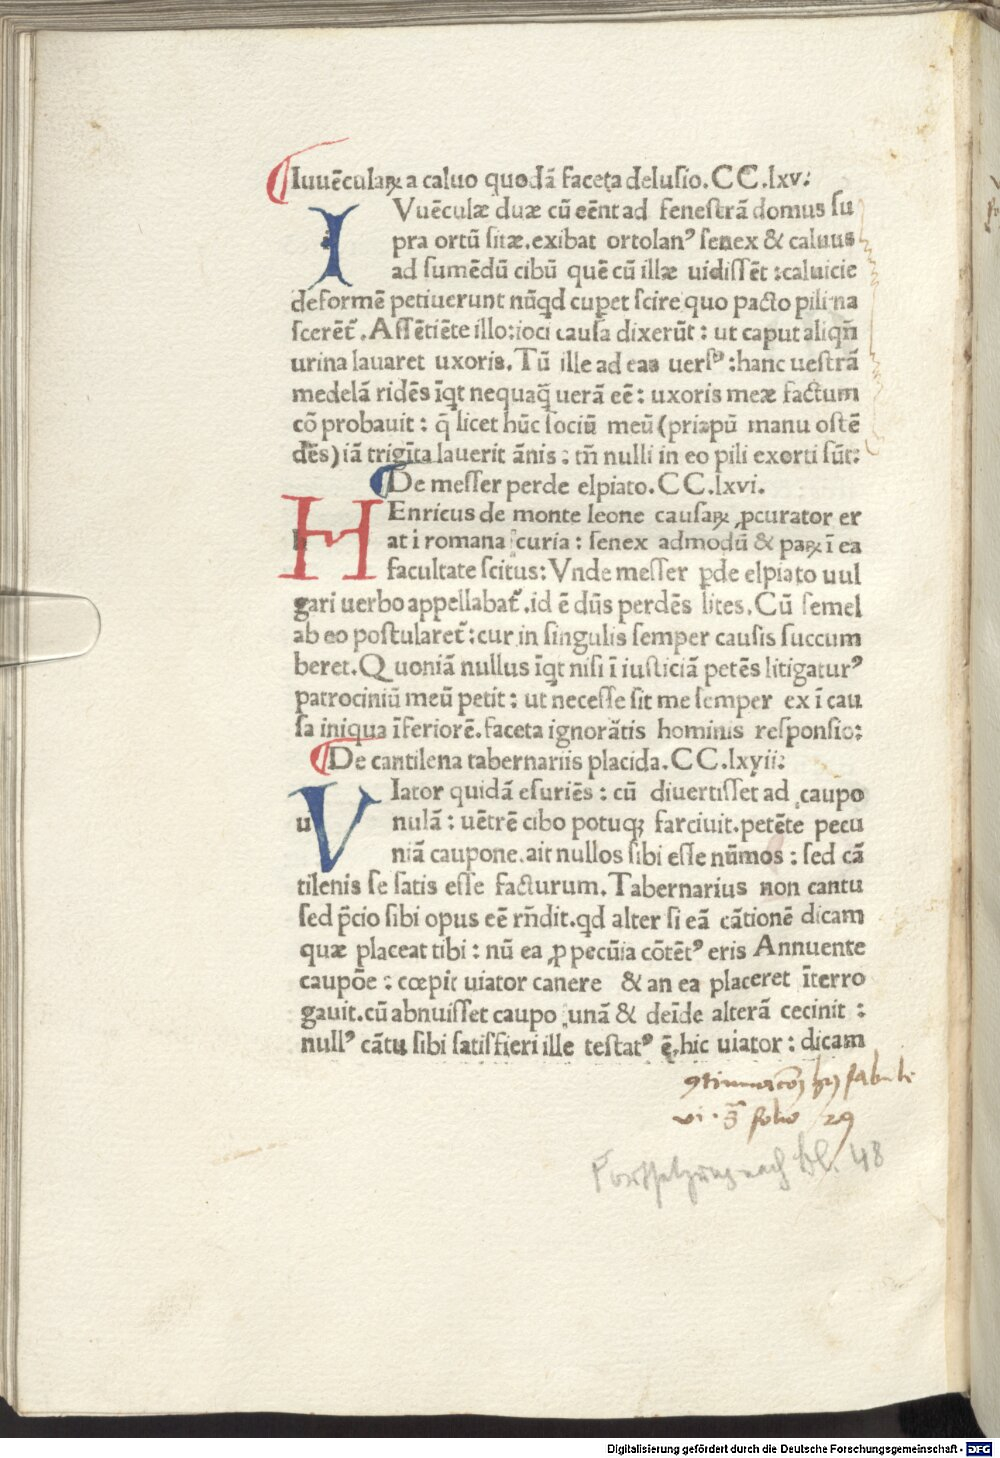 Iuuēculaꝝ a caluo quodā faceta delusio.CC.lxv:
I Vuēculæ duæ cū eēnt ad feneſtrā domus ſu
pra ortū ſitæ.exibat ortolanꝰ ſenex & caluus
ad ſumēdū cibū quē cū illæ uidiſſēt :caluicie
deformē petiuerunt nūqd cupet ſcire quo pacto pili na
ſcerēt᷑. Aſſētiēte illo:ioci cauſa dixerūt : ut caput aliqñ
urina lauaret uxoris. Tū ille ad eas uerſꝰ :hanc ueſtrā
medelā ridēs īqt nequaq̄ uerā eē : uxoris meæ factum
cō probauit : q̄ licet hūc ſociū meū (priapū manu oſtē
dēs) iā trigīta lauerit ānis : tñ nulli in eo pili exorti ſūt:
De meſſer perde elpiato.CC.lxvi.
H Enricus de monte leone cauſaꝝ ꝓcurator er
at i romana curia : ſenex admodū & paꝝ ī ea
facultate ſcitus: Vnde meſſer ꝑde elpiato uul
gari uerbo appellabat᷑.id ē dūs perdēs lites. Cū ſemel
ab eo poſtularet᷑: cur in ſingulis ſemper cauſis ſuccum
beret. Quoniā nullus īqt niſi ī iuſticiā petēs litigaturꝰ
patrociniū meū petit : ut neceſſe ſit me ſemper ex ī cau
ſa iniqua īferiorē. faceta ignorātis hominis reſponſio:
De cantilena tabernariis placida.CC.lxyii:
V u Iator quidā eſuriēs : cū diuertiſſet ad caupo
nulā : uētrē cibo potuqꝫ farciuit.petēte pecu
niā caupone.ait nullos ſibi eſſe nūmos : ſed cā
tilenis ſe ſatis eſſe facturum. Tabernarius non cantu
ſed p̄cio ſibi opus eē rñdit.qd alter ſi eā cātionē dicam
quæ placeat tibi : nū ea ꝓ pecūia cōtētꝰ eris Annuente
caupōe : cœpit uiator canere & an ea placeret īterro
gauit.cū abnuiſſet caupo unā & deīde alterā cecinit :
nullꝰ cātu ſibi ſatiſfieri ille teſtatꝰ ē.hic uiator : dicam
folio 29
Fortsetzung nach Bl. 48
Digitalisierung gefördert durch die Deutsche Forschungsgemeinschaft - DFG